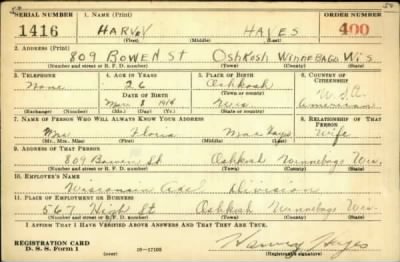 SERIAL NUMBER 1. NAME (Print) ORDER NUMBER
1416 HARVEY HAYES 400
(First) (Middle) (Last)
2. ADDRESS (Print)
809 BOWEN St OSHKOSH WINNEBAGO WIS
(Number and street or R. F. D. number) (Town) (County) (State)
3. TELEPHONE 4. AGE IN YEARS 5. PLACE OF BIRTH 6. COUNTRY OF CITIZENSHIP
None 26 Oshkosh U.S.A.
DATE OF BIRTH (Town or county)
Mar 8 1914 Wis American
(Exchange) (Number) (Mo.) (Day) (Yr.) (State or country)
7. NAME OF PERSON WHO WILL ALWAYS KNOW YOUR ADDRESS 8. RELATIONSHIP OF THAT PERSON
Mrs Mae Hayes Wife
(Mr., Mrs., Miss) (First) (Middle) (Last)
9. ADDRESS OF THAT PERSON
809 Bowen St Oshkosh Winnebago Wis.
(Number and street or R. F. D. number) (Town) (County) (State)
10. EMPLOYER'S NAME
Wisconsin Axel Division
11. PLACE OF EMPLOYMENT OR BUSINESS
567 High St Oshkosh Winnebago Wis.
(Number and street or R. F. D. number) (Town) (County) (State)
I AFFIRM THAT I HAVE VERIFIED ABOVE ANSWERS AND THAT THEY ARE TRUE.
REGISTRATION CARD
D. S. S. Form 1 16-17105 Harvey Hayes
(Registrant's signature)